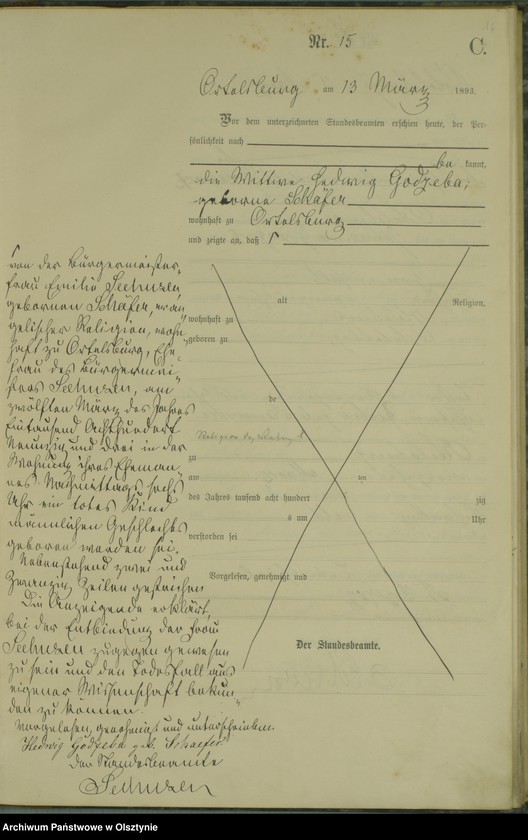 Nr. 15
C.
Ortelsburg am 13 März 1893.
Vor dem unterzeichneten Standesbeamten erschien heute, der Per-
sönlichkeit nach
be kannt,
die Wittwe Hedwig Godzeba,
geborne Schäfer
wohnhaft zu Ortelsburg
und zeigte an, daß
alt Religion,
wohnhaft zu
geboren zu
de
Religion
zu
am ten
des Jahres tausend acht hundert zig
s um Uhr
verstorben sei
Vorgelesen, genehmigt und
Der Standesbeamte.
von der Bürgermeister-
frau Emilie
gebornen Schäfer, evan-
gelischer Religion, wohn-
haft zu Ortelsburg, Ehe-
frau des Bürgermei-
sters am
zwölften März des Jahres
Eintausend Achthundert
Neunzig und drei in der
Wohnung ihres Eheman-
nes Nachmittags sechs
Uhr ein todtes Kind
männlichen Geschlechts
geboren worden sei.
Nebenstehend zwei und
zwanzig Zeilen gestrichen
Die Anzeigende erklärt,
bei der Entbindung der Frau
zugegen gewesen
zu sein und den Todesfall aus
eigener Wissenschaft bekun-
den zu können.
Vorgelesen, genehmigt und unterschrieben.
Hedwig Godzeba geb. Schaefer
Der Standesbeamte
Archiwum Państwowe w Olsztynie